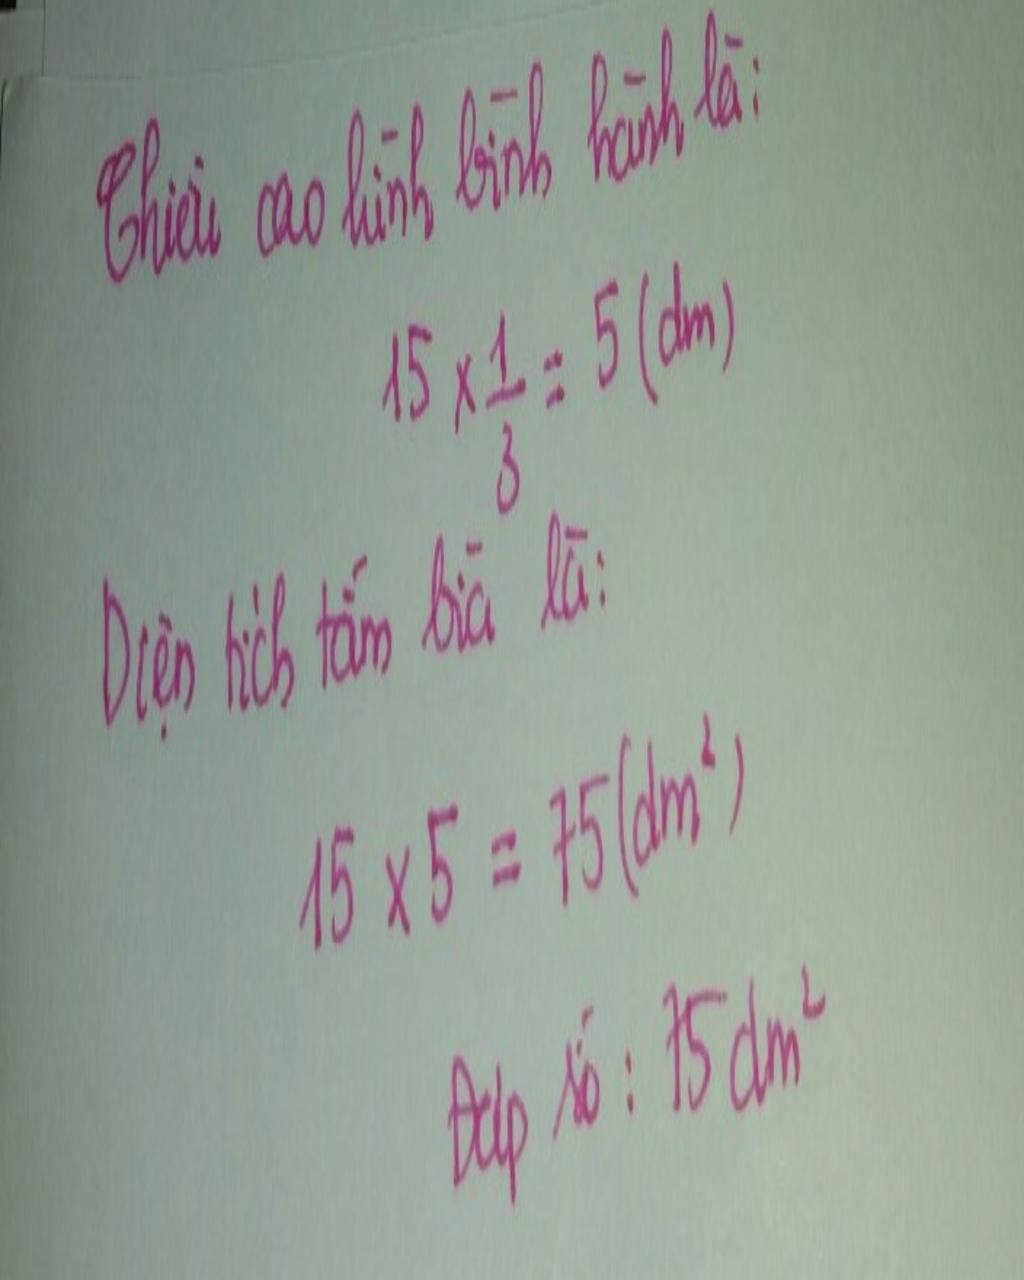 Chiều cao hình bình hành là:
15 × 1/3 = 5 (dm)
Diện tích tấm bìa là:
15 × 5 = 75 (dm²)
Đáp số: 75 dm²